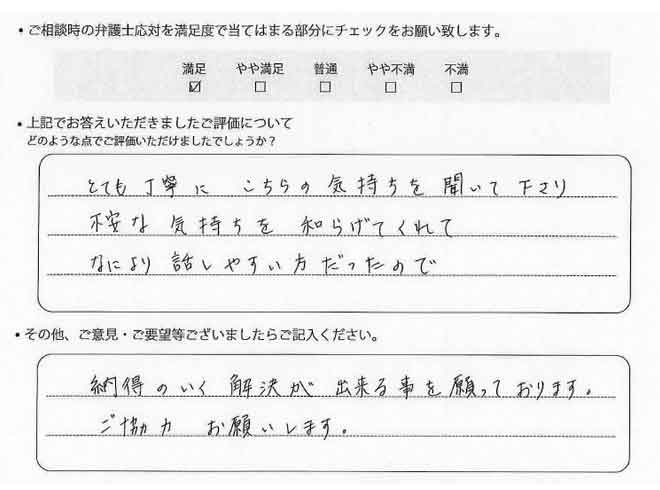 ・ご相談時の弁護士応対を満足度で当てはまる部分にチェックをお願い致します。
満足 やや満足 普通 やや不満 不満
☑ □ □ □ □
・上記でお答えいただきましたご評価について
どのような点でご評価いただけましたでしょうか？
とても丁寧に こちらの気持ちを聞いて下さり
不安な気持ちを 和らげてくれて
なにより話しやすい方だったので
・その他、ご意見・ご要望等ございましたらご記入ください。
納得のいく解決が 出来る事を願っております。
ご協力 お願いします。